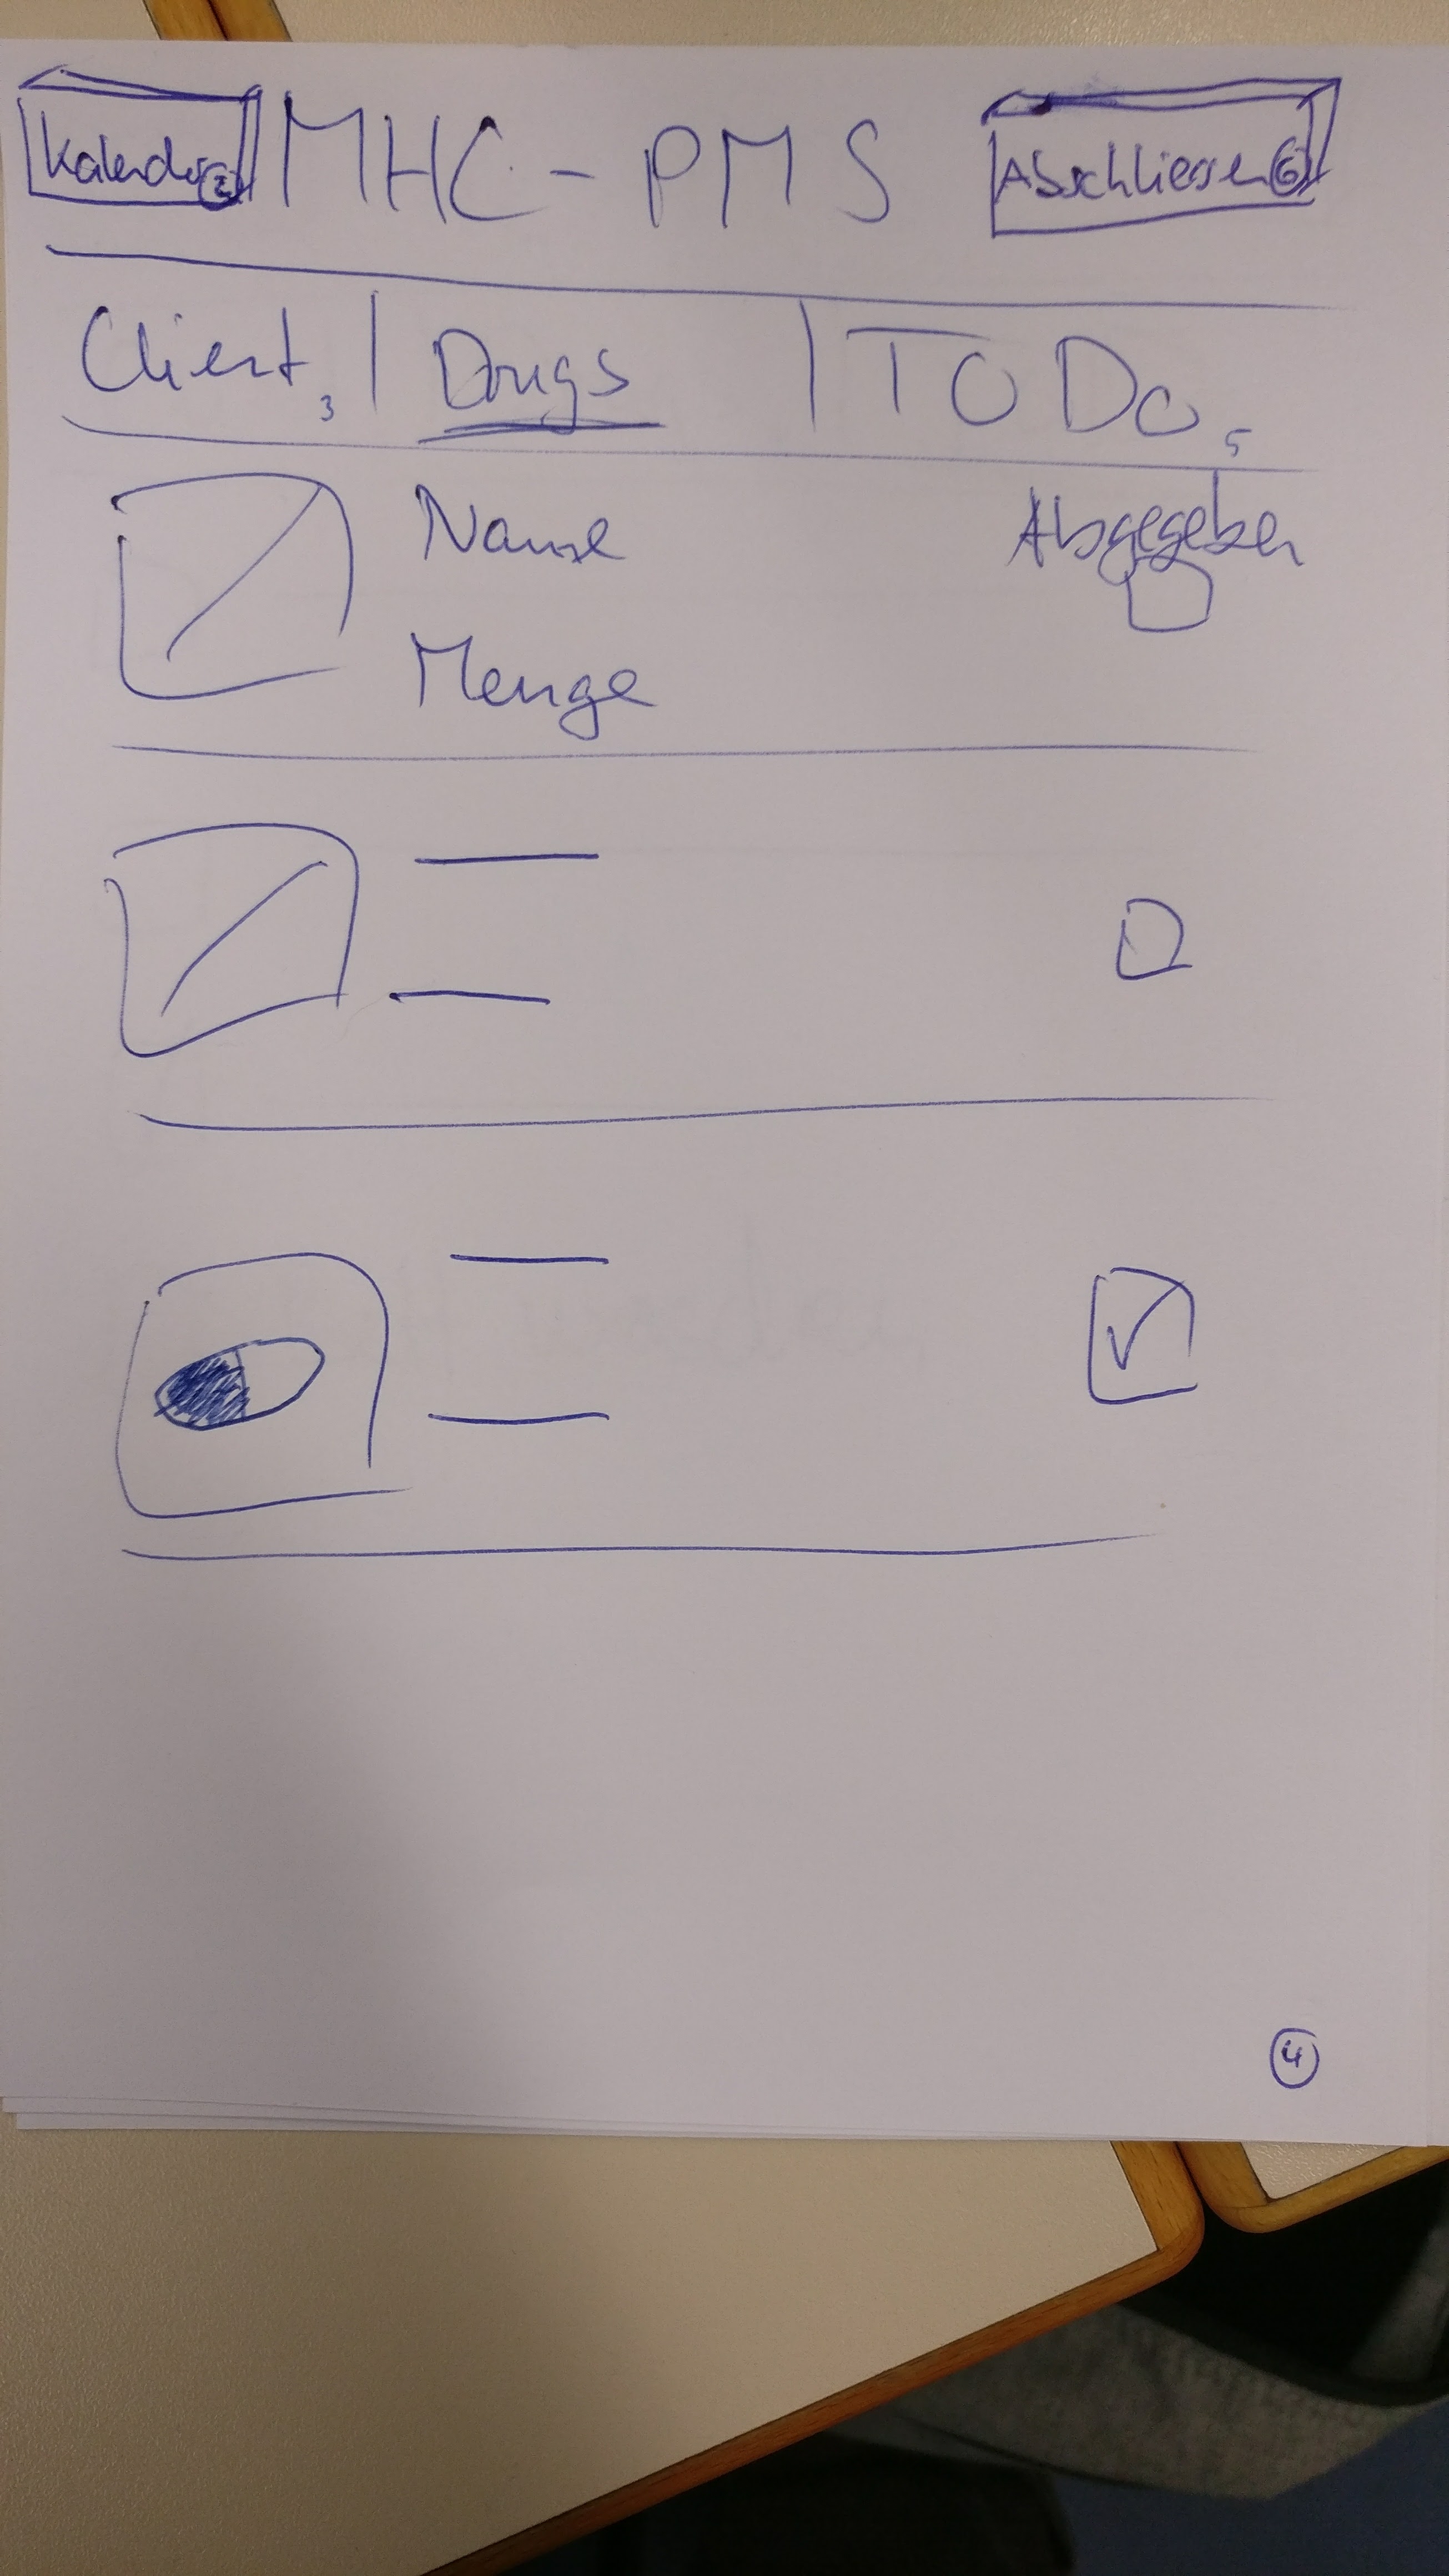 Kalender 2 MHC-PMS Abschliessen 6
Client 3 | Drugs | TO Do 5
Name Abgegeben
Menge
4